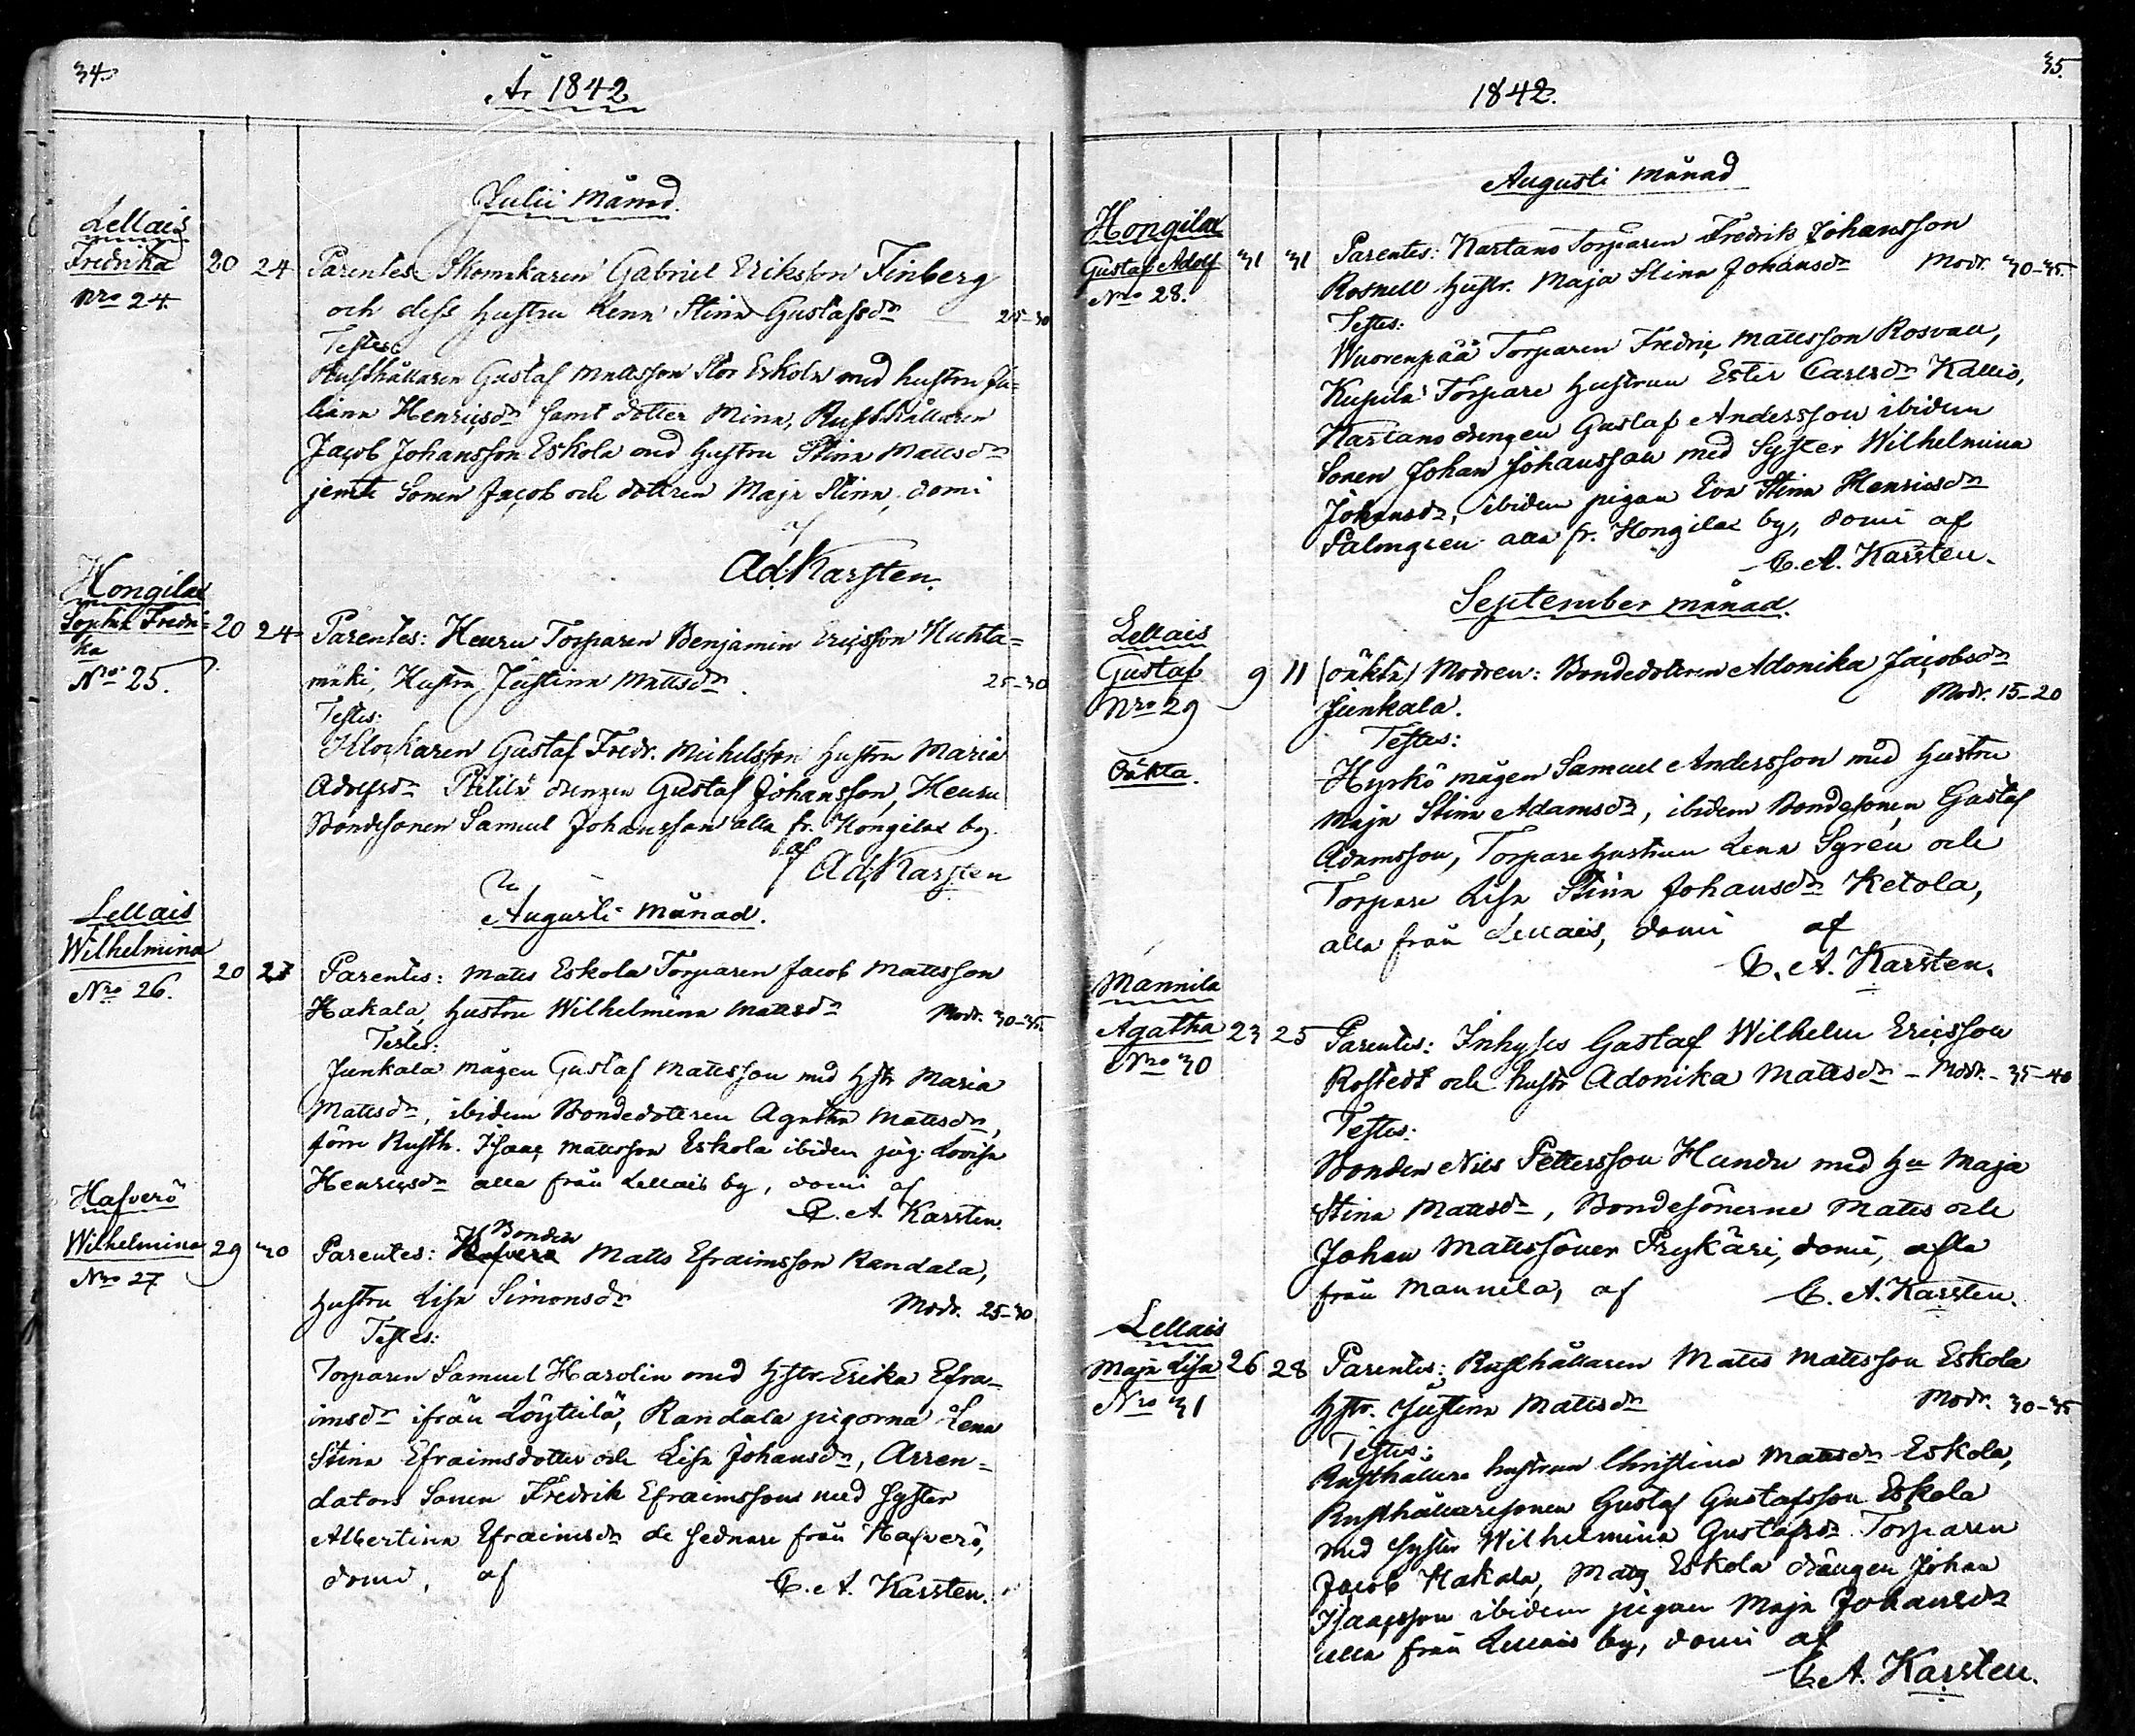 34.
År 1842
Julii Månad.
Lellais
Fredrika
Nro 24
20 24 Parentes Skomakaren Gabriel Eriksson Finberg
och dess hustru Lena Stina Gustafsdr 25-30
Testes
Rusthållaren Gustaf Mattsson Stor Eskola med hustru Ju=
liana Henricsdr samt dotter Mina, Rusthållaren
Jacob Johansson Eskola med hustru Stina Mattsdr
jemte Sonen Jacob och dottren Maja Stina, domi
af
Ad. Karsten.
Hongilax
Sophia Fredri=
ka
Nro 25.
20 24 Parentes: Heuru Torparen Benjamin Ericsson Huhta=
mäki, Hustru Justina Mattsdr 25-30
Testes:
Klockaren Gustaf Fredr. Michelsson hustru Maria
Adolfsdr drengen Gustaf Johansson, Heuru
Bondesonen Samuel Johansson alla fr. Hongilax by.
af Ad. Karsten
Augusti Månad.
Lellais
Wilhelmina
Nro 26.
20 27 Parentes: Matts Eskola Torparen Jacob Mattsson
Hakala, hustru Wilhelmina Mattsdr Modr. 30-35.
Testes:
Junkala mågen Gustaf Mattsson med hstr Maria
Mattsdr, ibidem Bondedottren Agatha Mattsdr,
förre Rusth. Isaac Mattsson Eskola ibidem pig. Lovisa
Henricsdr alla från Lellais by, domi af
C. A. Karsten.
Hafverö
Wilhelmina
Nro 27
29 30 Parentes: Bonden Matts Efraimsson Randala,
hustru Lisa Simonsdr Modr. 25-30.
Testes:
Torparen Samuel Harolin med hstr Erika Efra=
imsdr ifrån Löytilä, Randala pigorna Lena
Stina Efraimsdotter och Lisa Johansdr, Arren=
dators Sonen Fredrik Efraimsson med syster
Albertina Efraimsdr de sednare från Hafverö,
domi, af C. A. Karsten.
35.
1842.
Augusti Månad
Hongilax
Gustaf Adolf
Nro 28.
31 31 Parentes: Kartano Torparen Fredrik Johansson
Rosnell hustr. Maja Stina Johansdr Modr. 30-35.
Testes:
Wuorenpää Torparen Fredric Mattsson Rosvall,
Kupila Torpare hustrun Ester Carlsdr Kallio,
Kartano drengen Gustaf Andersson ibidem
Sonen Johan Johansson med Syster Wilhelmina
Johansdr, ibidem pigan Eva Stina Henricsdr
Palmgren alla fr. Hongilax by, domi af
C. A. Karsten.
September månad.
Lellais
Gustaf
Nro 29
Oäkta.
9 11 (oäkta) Modren: Bondedottren Adonika Jacobsdr
Junkala. Modr. 15-20
Testes:
Hyrkö mågen Samuel Andersson med hustru
Maja Stina Adamsdr, ibidem Bondesonen Gustaf
Adamsson, Torpare hustrun Lena Syrén och
Torpare Lisa Stina Johansdr Ketola,
alla från Lellais, domi af
C. A. Karsten.
Mannila
Agatha
Nro 30
23 25 Parentes: Inhyses Gustaf Wilhelm Ericsson
Rostedt och hustr Adonika Mattsdr - Modr. - 35-40
Testes:
Bonden Nils Pettersson Hundu med hu Maja
Stina Mattsdr, Bondesönerne Matts och
Johan Mattssöner Prykäri, domi, alla
från Mannila, af C. A. Karsten.
Lellais
Maja Lisa
Nro 31
26 28 Parentes: Rusthållaren Matts Mattsson Eskola
hstr. Justina Mattsdr Modr. 30-35
Testes:
Rusthållare hustrun Christina Mattsdr Eskola,
Rusthållaresonen Gustaf Gustafsson Eskola
med syster Wilhelmina Gustafsdr Torparen
Jacob Hakala, Matts Eskola drängen Johan
Isaacsson ibidem pigan Maja Johansdr
alla från Lellais by, domi af
C. A. Karsten.